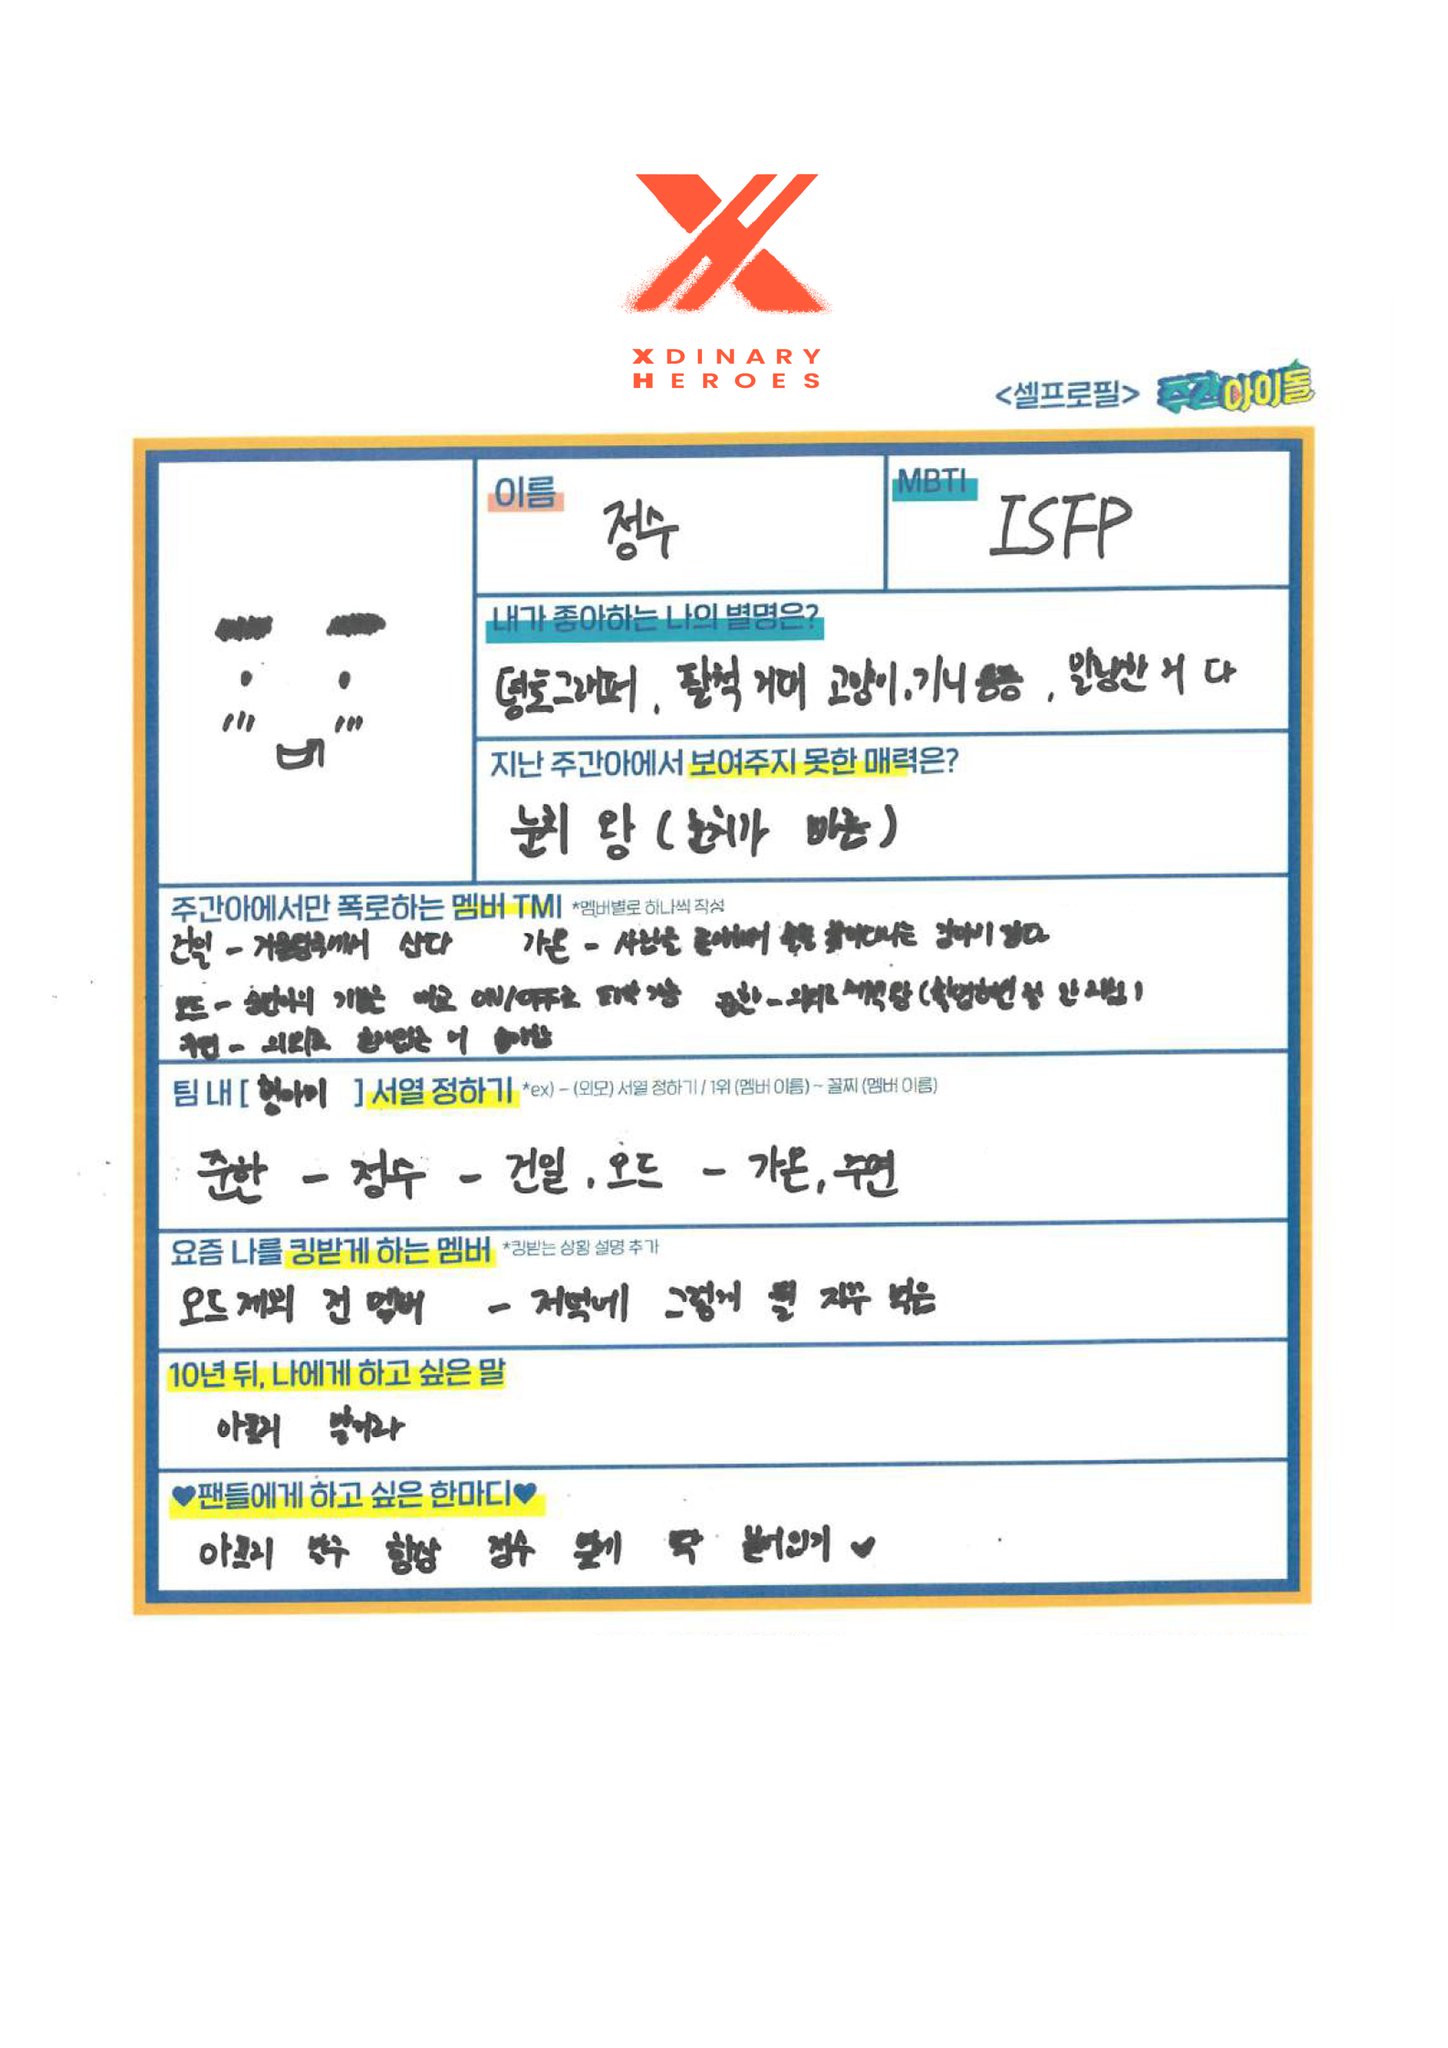 XDINARY
HEROES
<셀프로필> 주간아이돌
이름
정수
MBTI
ISFP
내가 좋아하는 나의 별명은?
팔척 거대 고양이, 기니 말랑한 거 다
지난 주간아에서 보여주지 못한 매력은?
눈치 왕 (눈치가 빠름)
주간아에서만 폭로하는 멤버 TMI *멤버별로 하나씩 작성
건일 - 산다 가온 - 사진을
오드 - 승민이의 기분은 ON/OFF로 파악 가능 준한 - 의외로
주연 - 의외로
팀 내 [ 형아미 ] 서열 정하기 *ex) - (외모) 서열 정하기 / 1위 (멤버 이름) ~ 꼴찌 (멤버 이름)
준한 - 정수 - 건일, 오드 - 가온, 주연
요즘 나를 킹받게 하는 멤버 *킹받는 상황 설명 추가
오드 제외 전 멤버 - 저녁에 그렇게 뭘 자꾸 먹음
10년 뒤, 나에게 하고 싶은 말
아프지 말거라
♥팬들에게 하고 싶은 한마디♥
아프지 말구 항상 정수 옆에 딱 붙어있기 ♥